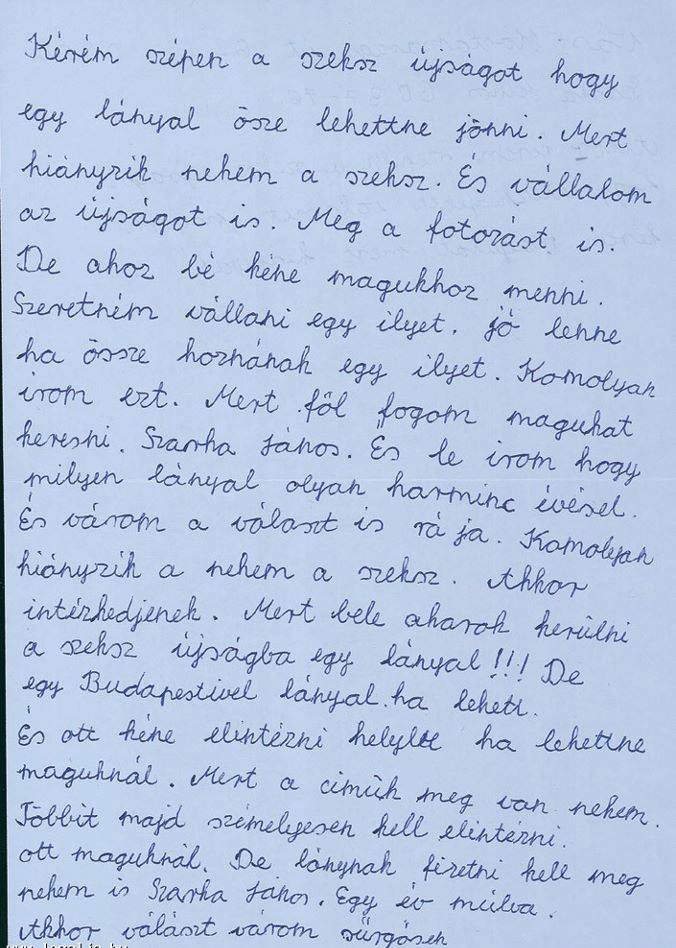 Kérém szépen a szeksz újságot hogy
egy lányal ösze lehettne jönni. Mert
hiányzik nehem a szeksz. És vállalom
az újságot is. Meg a fotozást is.
De ahoz bé kéne magukhoz menni.
Szeretném vállani egy ilyet. jó lenne
ha össze hoznának egy ilyet. Komolyan
irom ezt. Mert föl fogom magukat
keresni. Szarka János. És le irom hogy
milyen lányal olyan harminc évésel.
És várom a választ is rá ja. Komolyan
hiányzik a nehem a szeksz. Akkor
intézkedjenek. Mert bele akarok kerülni
a szeksz újságba egy lányal!!! De
egy Budapestivel lányal. ha lehett.
És ott kéne elintézni ha lehettne
maguknál. Mert a cimük meg van nehem.
Többit majd személyesen kell elintézni.
ott maguknál. De lánynak fizetni kell meg
nehem is Szarka János. Egy év múlva.
Akkor válászt várom sürgösen